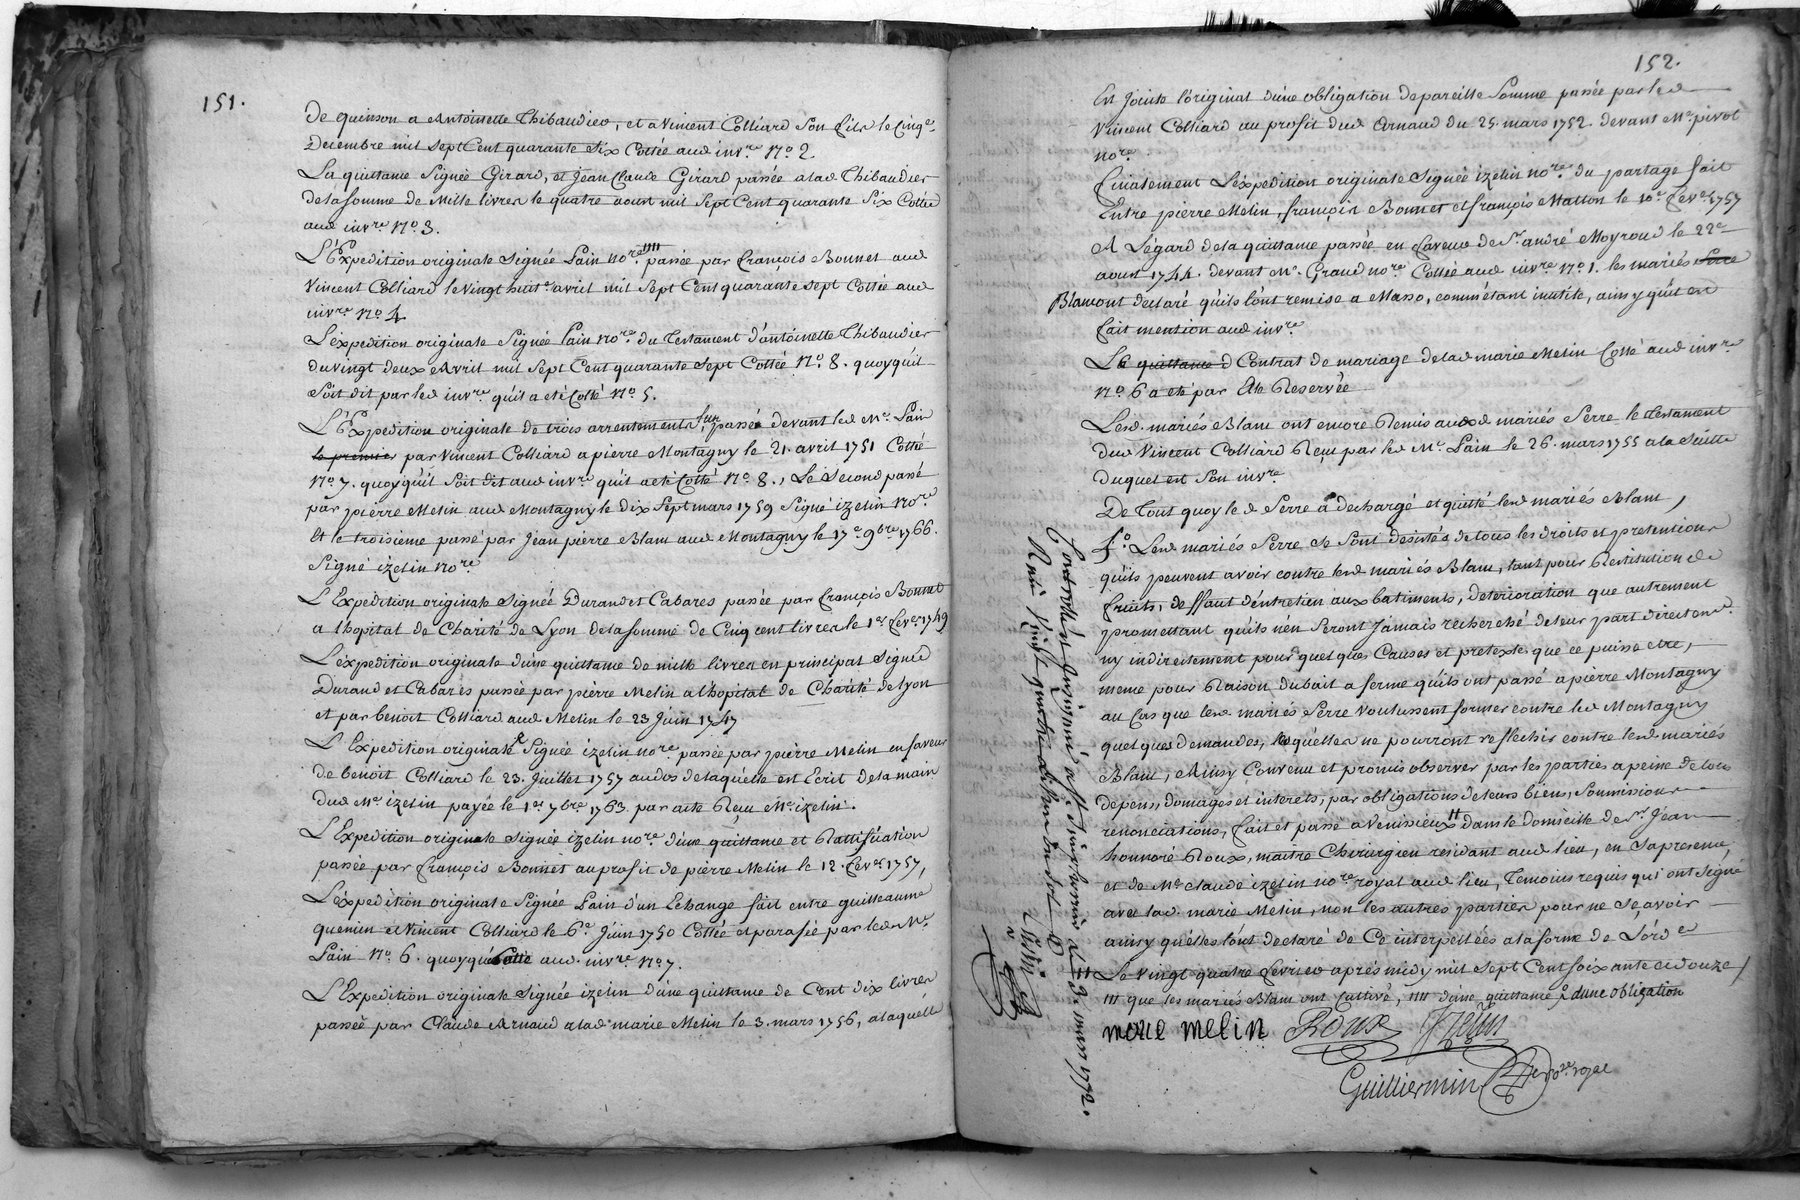 151.
De quinson a Antoinette Thibaudier, et a Vincent Colliard Son fils le Cinq.e
Decembre mil Sept Cent quarante Six Cottée aud inv.re N.o 2.
La quittance Signée Girard, et Jean Claude Girard passée a lad Thibaudier
de la somme de Mille livres le quatre aoust mil Sept Cent quarante Six Cottée
aud inv.re N.o 3.
L'Expedition originale signée Pain no.re IIII passée par François Bonnet aud
Vincent Colliard le vingt huit.e avril mil Sept Cent quarante sept Cottée aud
inv.re N.o 4
L'expedition originale Signée Pain No.re du Testament d'antoinette Thibaudier
du vingt deux Avril mil Sept Cent quarante Sept Cotté N.o 8. quoyqu'il
Soit dit par led inv.re qu'il a eté Cotté N.o 5.
L'Expedition originale de trois arrentements l'un passé devant led M.e Pain
le premier par Vincent Colliard a pierre Montagny le 21. avril 1751 Cotté
N.o 7. quoyqu'il Soit dit aud inv.re qu'il a eté Cotté N.o 8., Le Second passé
par pierre Melin aud Montagny le dix Sept mars 1759 Signé izelin No.re
Et le troisieme passé par Jean pierre Blanc aud Montagny le 17.e 9bre 1766.
Signé izelin no.re
L'Expedition originale signée Durand et Cabares passée par François Bonnet
a l'hopital de Charité de Lyon de la somme de Cinq cent livres le 1.er fev.er 1749
L'expedition originale d'une quittance de mille livres en principal signée
Durand et Cabares passée par pierre Melin a l'hopital de Charité de Lyon
et par benoit Colliard aud Melin le 23 Juin 1747
L'Expedition originale Signée izelin no.re passée par pierre Melin en faveur
de benoit Colliard le 23. Juillet 1757 au dos de laquelle est Ecrit de la main
dud M.e izelin payée le 1.er 7bre 1763. par acte Reçu M.e izelin.
L'Expedition originale signée izelin no.re d'une quittance et Rattification
passée par François Bonnet au profit de pierre Melin le 12. fev.er 1757,
L'expedition originale Signée Pain d'un Echange fait entre guilleaume
quenin et Vincent Colliard le 6.e Juin 1750 Cottée et parafée par led M.e
Pain N.o 6. quoyque Cotté aud. inv.re N.o 7.
L'Expedition originale Signée izelin d'une quittance de Cent dix livres
passée par Claude Arnaud a lad marie Melin le 3. mars 1756, a laquelle
152.
Est Jointe l'original d'une obligation de pareille Somme passée par led
Vincent Colliard au profit dud Arnaud du 25. mars 1752. devant M.e pivot
no.re
Finalement L'expedition originale Signée izelin no.re du partage fait
Entre pierre Melin, françois Bonnet et françois Matton le 10.e fev.er 1757
A L'égard de la quittance passée en faveur de S.r andré Moyroud le 22.e
aoust 1744. devant M.e Graud no.re Cottée aud inv.re N.o 1. les mariés Serre
Blanc ont declaré qu'ils l'ont remise a Maso, comm'étant inutile, ainsy qu'il est
fait mention aud inv.re
Le quittance d Contrat de mariage de lad marie Melin Cotté aud inv.re
N.o 6 a eté par Elle Reservée
Lesd. mariés Blanc ont encore Remis auxd mariés Serre le testament
dud Vincent Colliard Reçu par led M.e Pain le 26. mars 1755 a la Suitte
duquel est Son inv.re
De Tout quoy led Serre a dechargé et quitté lesd mariés Blanc,
4.o Lesd mariés Serre Se Sont desistés de tous les droits et pretentions
qu'ils peuvent avoir contre lesd mariés Blanc, tant pour Restitution de
fruits, deffaut d'entretien aux batiments, deterioration que autrement
promettant qu'ils n'en Seront Jamais recherché de leur part directem.t
ny indirectement pour quelques Causes et pretexte que ce puisse etre,
meme pour Raison du bail a ferme qu'ils ont passé a pierre Montagny
au Cas que lesd mariés Serre voulussent former contre led Montagny
quelques demandes, lesquelles ne pourront reflechir contre lesd. mariés
Blanc, Ainsy Convenu et promis observer par les parties a peine de tous
depens, domages et interets, par obligations de leurs biens, Soumissions
renonciations, fait et passé a Venissieux II dans le domicille de S.r Jean
honnoré Roux, maitre Chirurgien residant aud lieu, en Sa presence,
et de M.e Claude izelin no.re royal aud lieu, Temoins requis qui ont signé
avec lad. marie Melin, non les autres parties pour ne Sçavoir
ainsy qu'elles l'ont declaré de Ce interpellées a la forme de L'ord.e
Le vingt quatre fevrier aprés midy mil Sept Cent soixante et douze /
III que les mariés Blanc ont Cultivé, IIII d'une quittance & d'une obligation
marie melin Roux Izelin
Guilliermin no.re royal
Controllé et Insinué a St Simphorien d'O. le 3. mars 1772.
Reçu vingt quatre